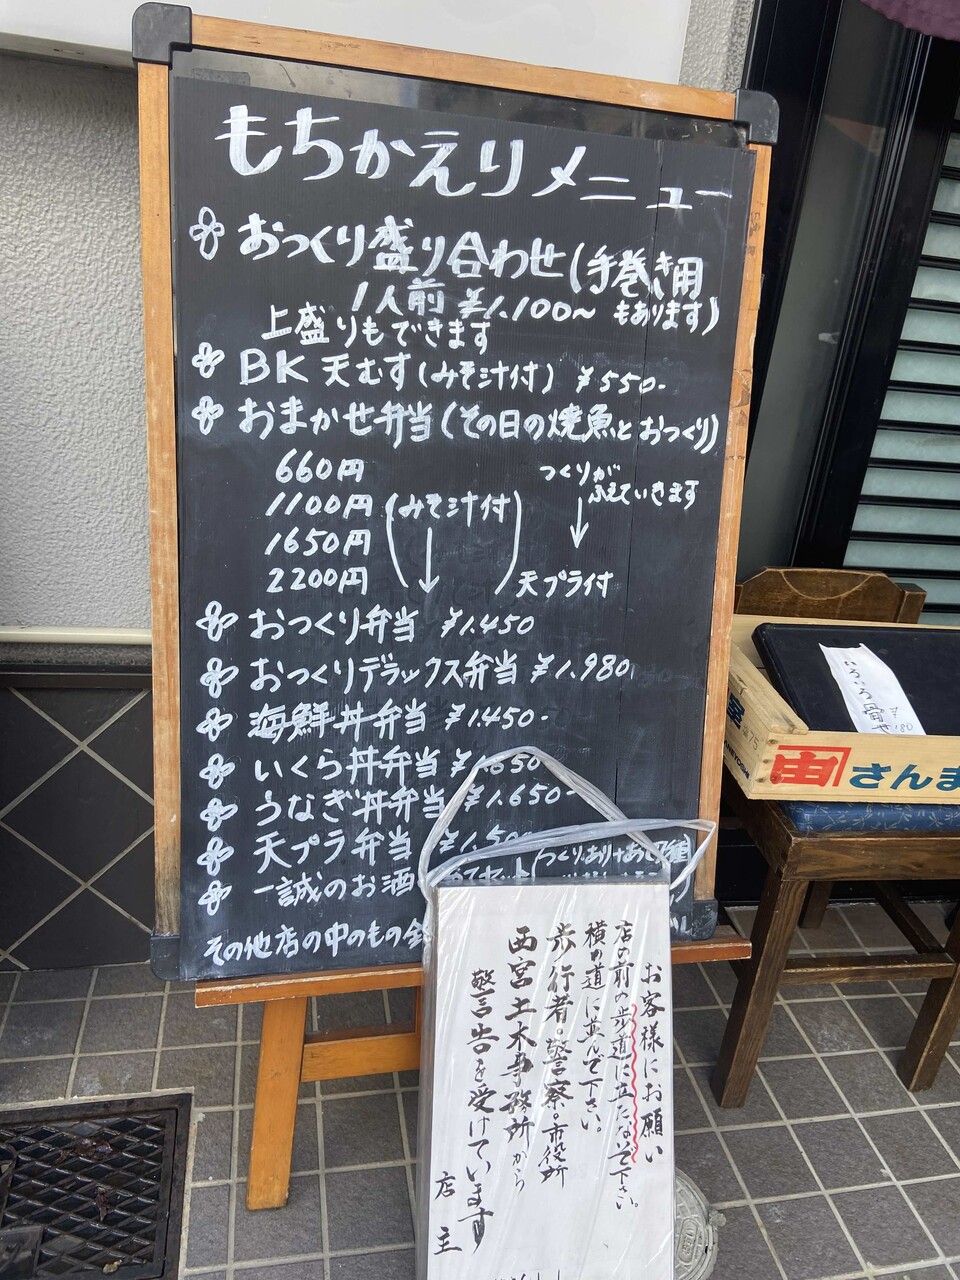 もちかえりメニュー
おつくり盛り合わせ(手巻き用もあります)
1人前 ¥1.100~
上盛りもできます
BK 天むす(みそ汁付) ¥550-
おまかせ弁当(その日の焼魚とおつくり)
660円
1100円(みそ汁付)
1650円
2200円
つくりが
ふえていきます
天プラ付
おつくり弁当 ¥1.450
おつくりデラックス弁当 ¥1.980
海鮮丼弁当 ¥1.450-
いくら丼弁当 ¥1.650
うなぎ丼弁当 ¥1.650-
天プラ弁当 ¥1.500
一誠のお酒
その他店の中のもの全
お客様にお願い
店の前の歩道に立たないで下さい。
横の道に並んで下さい。
歩行者。警察。市役所
西宮土木事務所から
警告を受けています
店主
いろいろ
180
さんま